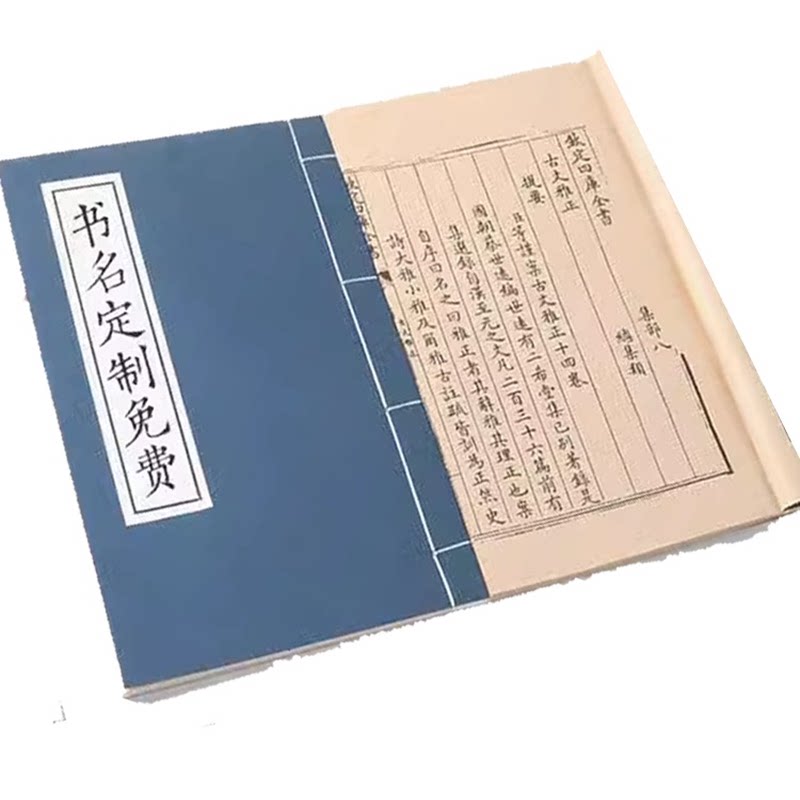 书名定制免费
钦定四库全书
集部八
古文雅正
總集類
提要
臣等謹案古文雅正十四卷
國朝蔡世遠編世遠有二希堂集已别著録是
集選録自漢至元之文凡二百三十六篇前有
自序曰名之曰雅正者其辭雅其理正也案
詩大雅小雅及爾雅古註疏皆訓為正然史